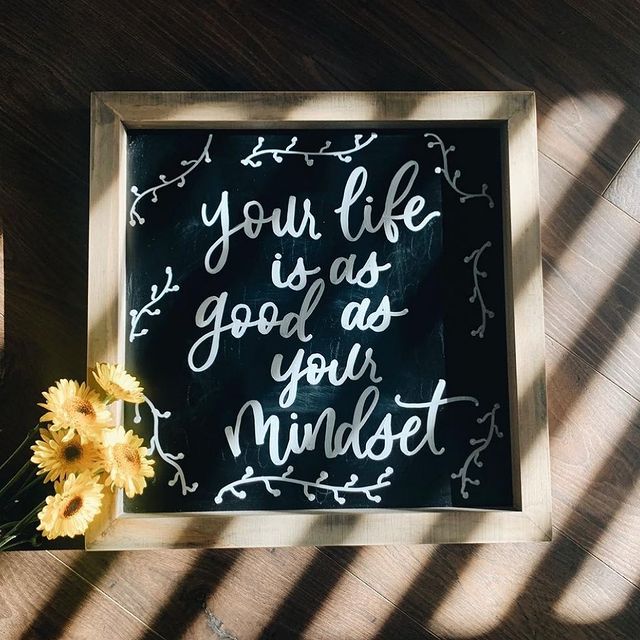 your life
is as
good as
your
mindset